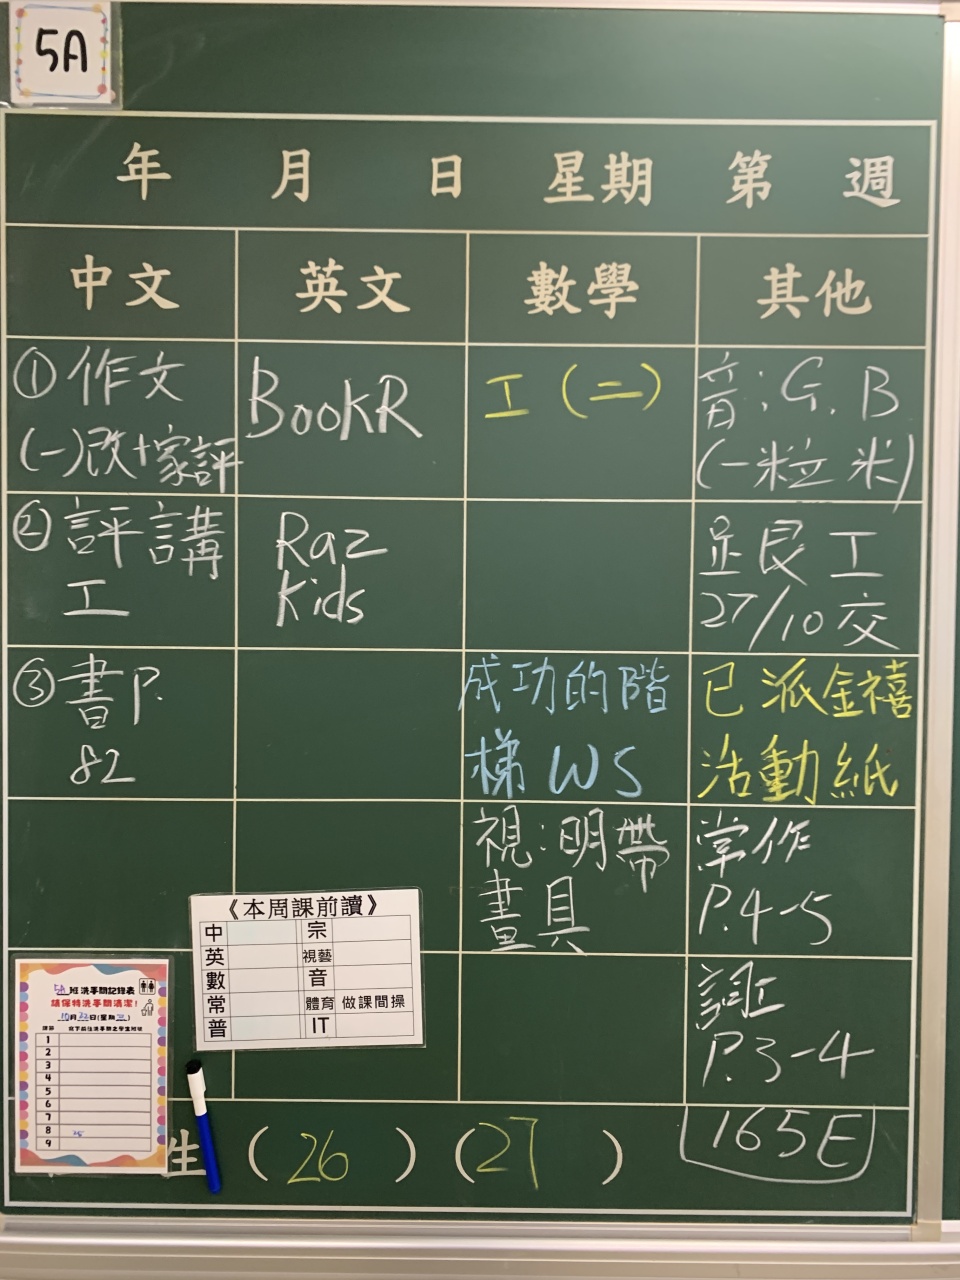 5A
年 月 日 星期 第 週
中文 英文 數學 其他
①作文
(一)改+家評
BookR
工(二)
音:G.B
(一粒米)
②評講
工
Raz
Kids
工
27/10交
③書P.
82
成功的階
梯WS
已派金禧
活動紙
視:明帶
畫具
常作
P.4-5
P.3-4
165E
《本周課前讀》
中 宗
英 視藝
數 音
常 體育 做課間操
普 IT
5A班洗手間記錄表
請保持洗手間清潔!
10月22日(星期三)
1
2
3
4
5
6
7
8 25
9
生 (26) (27)